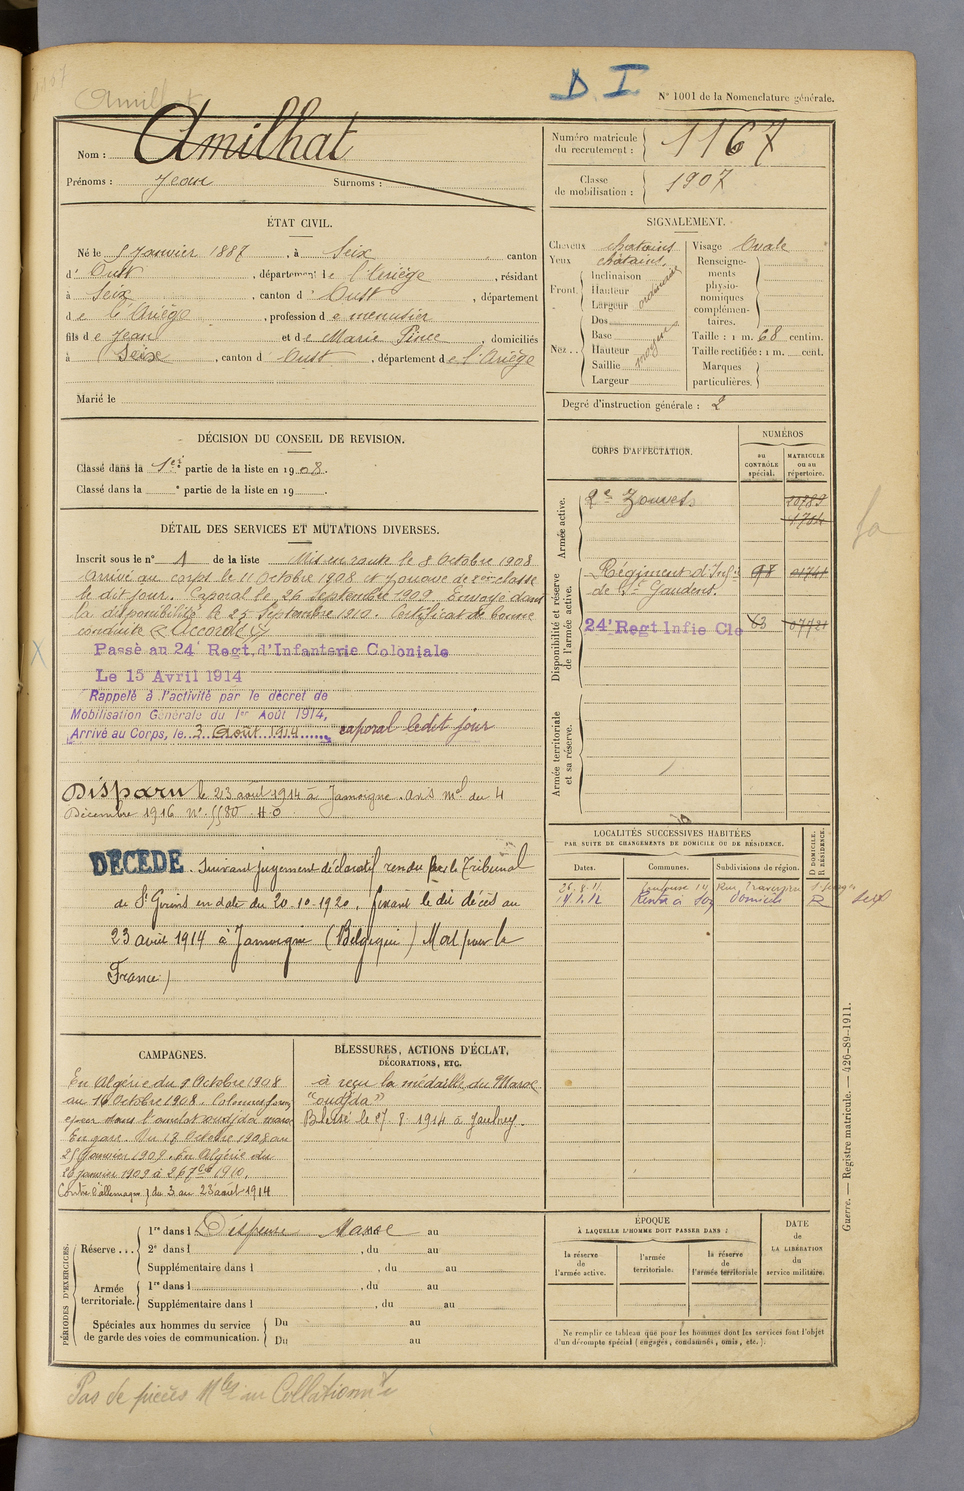 Amilhat
D. I.
N° 1001 de la Nomenclature générale.
Nom : Amilhat
Prénoms : Jean Surnoms :
Numéro matricule du recrutement : 1167
Classe de mobilisation : 1907
ÉTAT CIVIL.
Né le 5 Janvier 1887, à Seix, canton
d' Oust, département de l'Ariège, résidant
à Seix, canton d' Oust, département
de l'Ariège, profession de menuisier
fils de Jean et de Marie Pince, domiciliés
à Seix, canton d' Oust, département de l'Ariège
Marié le
SIGNALEMENT.
Cheveux chatains Visage Ovale
Yeux chatains.
Front. Inclinaison
Hauteur ordinaire
Largeur
Nez.. Dos
Base
Hauteur moyen
Saillie
Largeur
Renseignements physionomiques complémentaires.
Taille : 1 m. 68 centim.
Taille rectifiée : 1 m. cent.
Marques particulières.
Degré d'instruction générale : 2
DÉCISION DU CONSEIL DE REVISION.
Classé dans la 1ère partie de la liste en 1908.
Classé dans la e partie de la liste en 19 .
CORPS D'AFFECTATION.
NUMÉROS
au CONTRÔLE spécial.
MATRICULE ou au répertoire.
Armée active.
2e Zouaves.
Disponibilité et réserve de l'armée active.
Régiment d'Infie 98
de St Gaudens.
24e Regt Infie Cle 63
Armée territoriale et sa réserve.
DÉTAIL DES SERVICES ET MUTATIONS DIVERSES.
Inscrit sous le n° 1 de la liste Mis en route le 8 Octobre 1908
Arrivé au corps le 11 Octobre 1908 et zouave de 2e classe
le dit jour. Caporal le 26 Septembre 1909. Envoyé dans
la disponibilité le 25 Septembre 1910. Certificat de bonne
conduite "Accordé"
Passé au 24e Regt. d'Infanterie Coloniale
Le 15 Avril 1914
Rappelé à l'activité par le décret de
Mobilisation Générale du 1er Août 1914,
Arrivé au Corps, le 3 Août 1914 caporal ledit jour
Disparu le 23 août 1914 à Jamoigne. avis mel du 4
Décembre 1916 N°
DÉCÉDÉ. Suivant jugement déclaratif rendu par le Tribunal
de St Girons en date du 20-10-1920, fixant le dit décès au
23 août 1914 à Jamoigne (Belgique) Mort pour la
France)
LOCALITÉS SUCCESSIVES HABITÉES
PAR SUITE DE CHANGEMENTS DE DOMICILE OU DE RÉSIDENCE.
D DOMICILE.
R RÉSIDENCE.
Dates. Communes. Subdivisions de région.
26.8.11 Toulouse 14 Rue
14.1.12 Rentré à son domicile R Seix
CAMPAGNES.
En Algérie du 9 Octobre 1908
au 16 Octobre 1908.
En guerre. Du 17 Octobre 1908 au
25 Janvier 1909. En Algérie du
26 Janvier 1909 à 26 7bre 1910.
Contre l'allemagne du 3 au 23 août 1914
BLESSURES, ACTIONS D'ÉCLAT,
DÉCORATIONS, ETC.
à reçu la médaille du Maroc
"oudjda"
Blessé le 27-8-1914 à Jaulney.
PÉRIODES D'EXERCICES.
Réserve... 1re dans l Dispense Maroc au
2e dans l , du au
Supplémentaire dans l , du au
Armée territoriale. 1re dans l , du au
Supplémentaire dans l , du au
Spéciales aux hommes du service de garde des voies de communication.
Du au
Du au
ÉPOQUE
À LAQUELLE L'HOMME DOIT PASSER DANS :
la réserve de l'armée active.
l'armée territoriale.
la réserve de l'armée territoriale
DATE de LA LIBÉRATION du service militaire.
Ne remplir ce tableau que pour les hommes dont les services font l'objet
d'un décompte spécial (engagés, condamnés, omis, etc.).
Guerre. — Registre matricule. — 426-89-1911.
Pas de pièces Mles